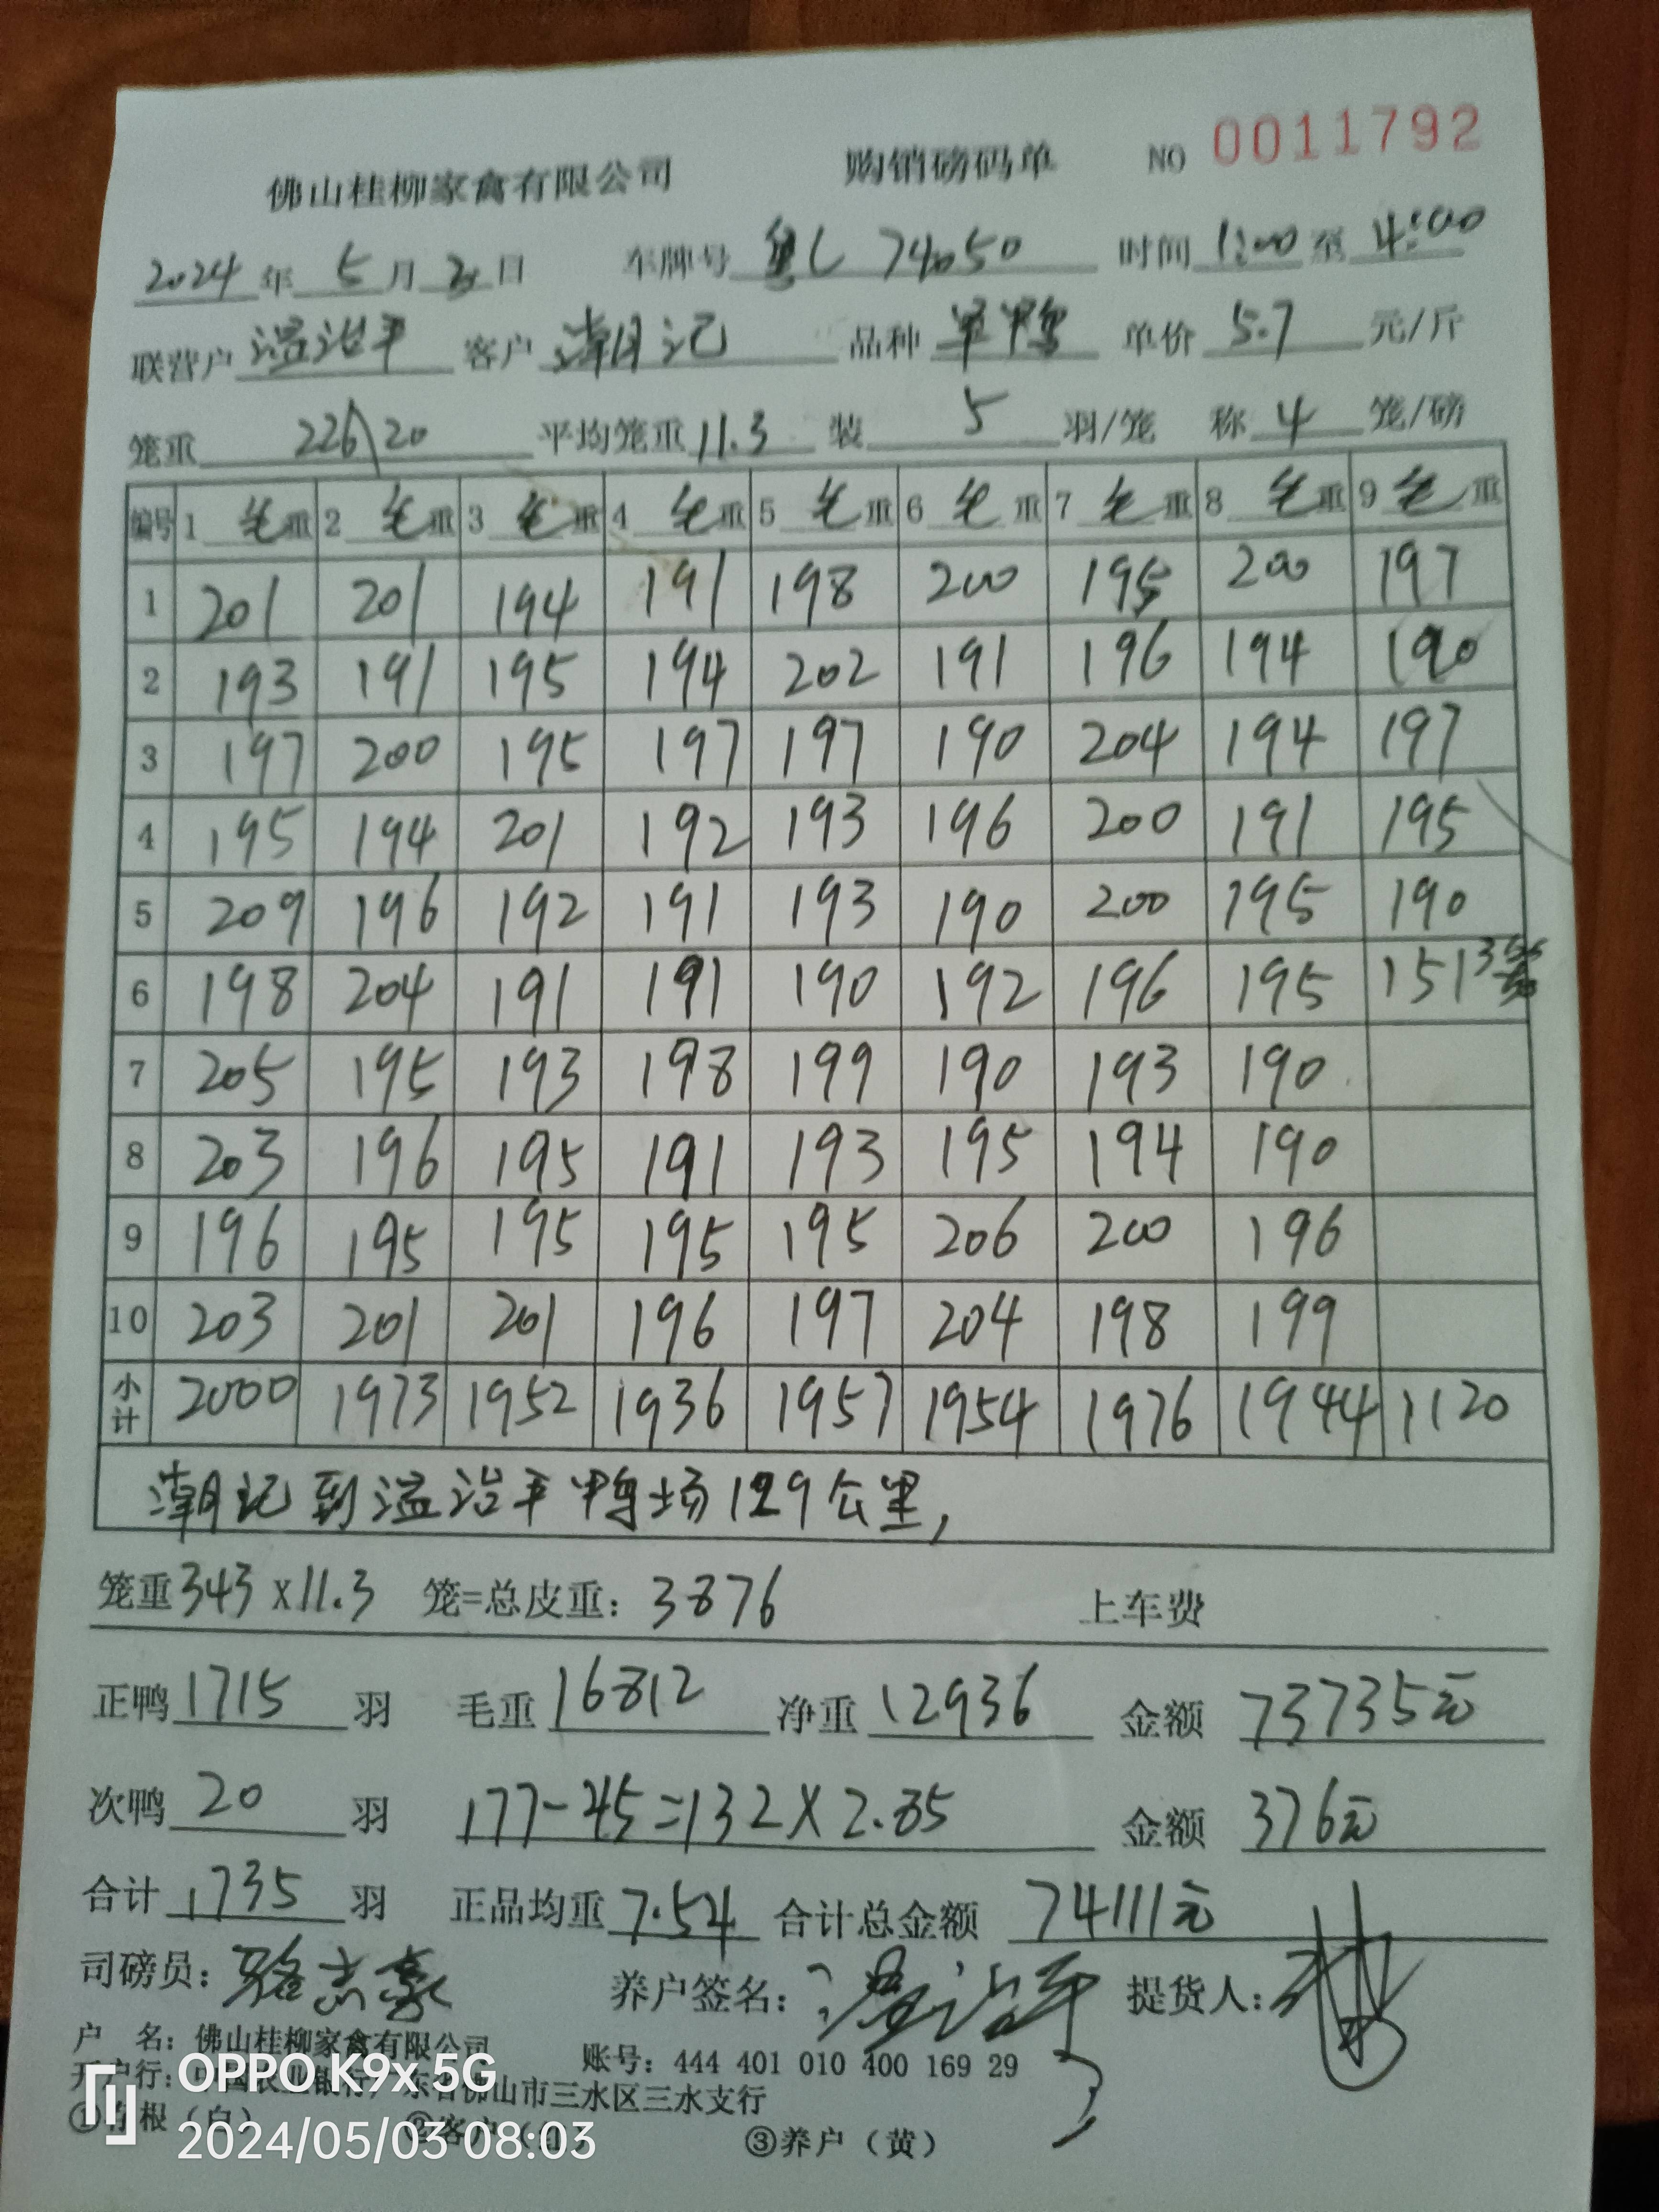 佛山桂柳家禽有限公司 购销磅码单 NO 0011792
2024年5月 日 车牌号 粤L 74050 时间1:00至4:00
联营户 温治平 客户 潮记 品种 单鸭 单价 5.7 元/斤
笼重 226\20 平均笼重 11.3 装 5 羽/笼 称 4 笼/磅
编号 1 毛重 2 毛重 3 毛重 4 毛重 5 毛重 6 毛重 7 毛重 8 毛重 9 毛重
1 201 201 194 191 198 200 195 200 197
2 193 191 195 194 202 191 196 194 190
3 197 200 195 197 197 190 204 194 197
4 195 194 201 192 193 196 200 191 195
5 209 196 192 191 193 190 200 195 190
6 198 204 191 191 190 192 196 195 151 3
7 205 195 193 198 199 190 193 190
8 203 196 195 191 193 195 194 190
9 196 195 195 195 195 206 200 196
10 203 201 201 196 197 204 198 199
小计 2000 1973 1952 1936 1957 1954 1976 1944 1120
潮记到温治平鸭场129公里,
笼重343x11.3 笼=总皮重: 3876 上车费
正鸭1715羽 毛重16812 净重12936 金额73735元
次鸭20羽 177-45=132X2.85 金额376元
合计1735羽 正品均重7.54 合计总金额74111元
司磅员: 骆志豪 养户签名: 温治平 提货人:
户 名: 佛山桂柳家禽有限公司 账号: 444 401 010 400 169 29
开户行: 中国农业银行广东省佛山市三水区三水支行
①存根(白) ②客户(红) ③养户(黄)
OPPO K9x 5G
2024/05/03 08:03